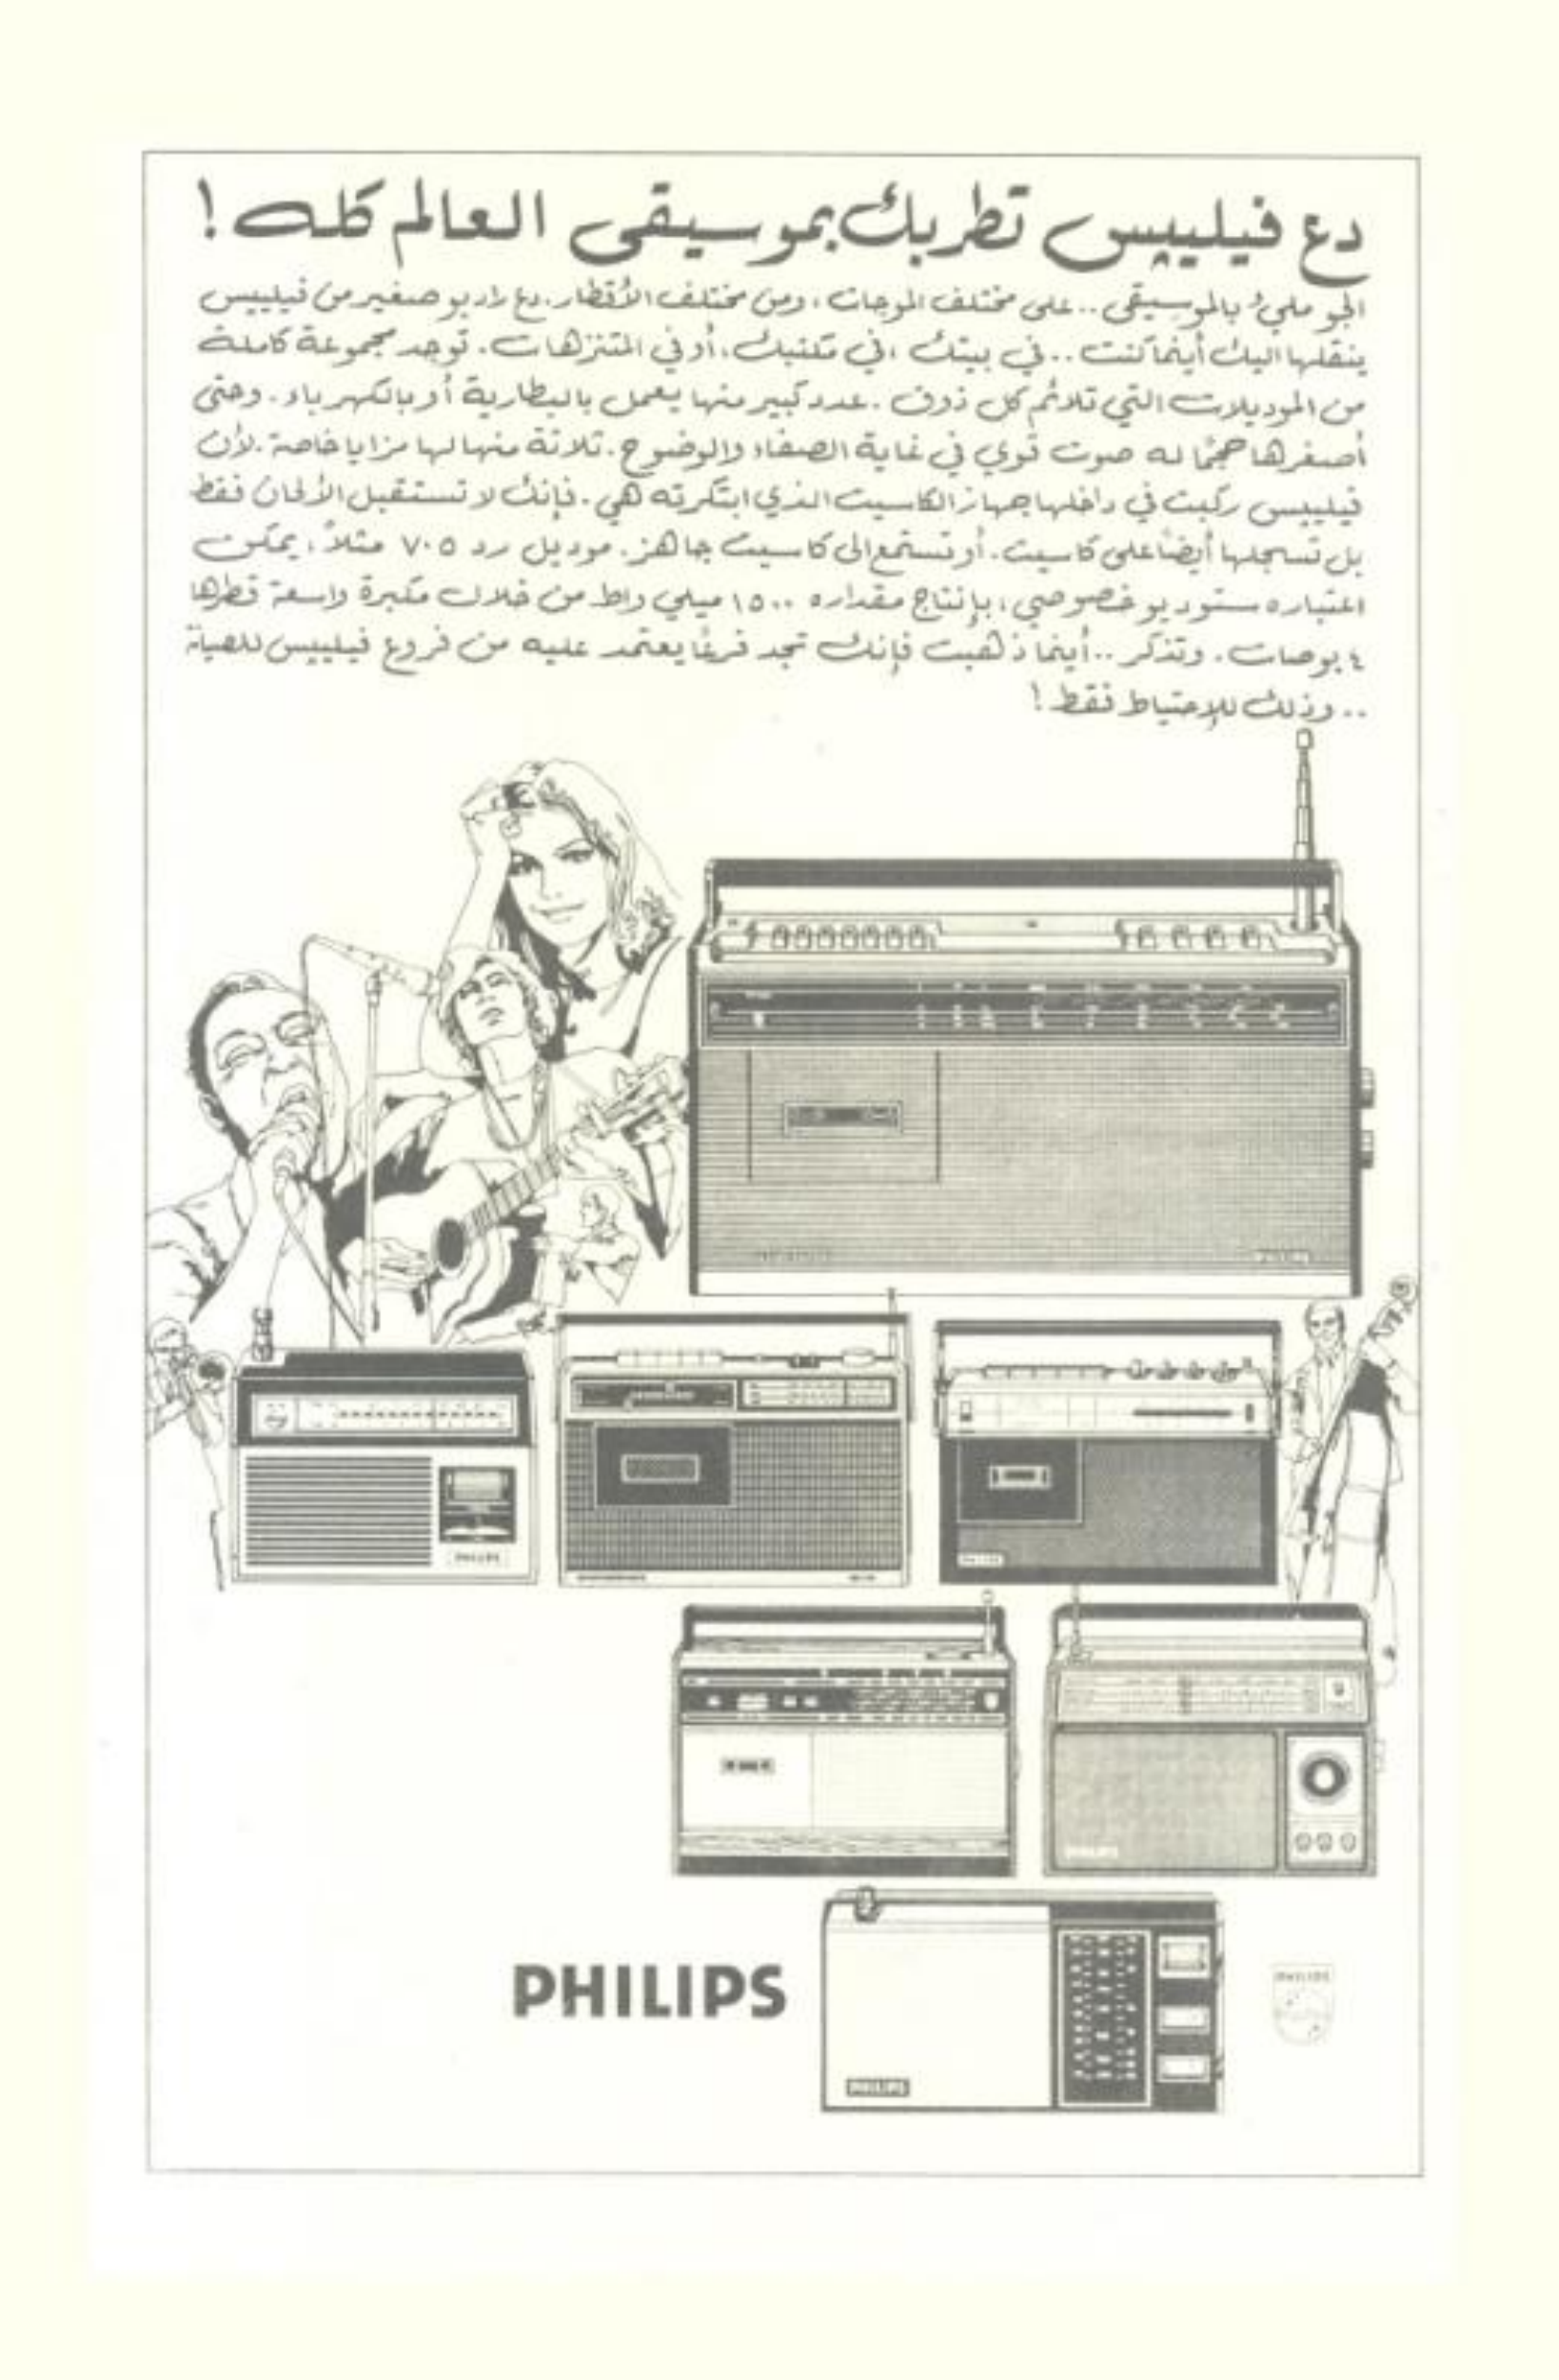 دع فيليپس تطربك بموسيقى العالم كله !
الجو مليءٌ بالموسيقى .. على مختلف الموجات ، ومن مختلف الأقطار . دع راديو صغير من فيليپس
ينقلها اليك أينما كنت .. في بيتك ، في مكتبك ، أو في المتنزهات . توجد مجموعة كاملة
من الموديلات التي تلائم كل ذوق . عدد كبير منها يعمل بالبطارية أو بالكهرباء . وحتى
أصغرها حجمًا له صوت قوي في غاية الصفاء والوضوح . ثلاثة منها لها مزايا خاصة . لأن
فيليپس ركبت في داخلها جهاز الكاسيت الذي ابتكرته هي . فإنك لا تستقبل الألحان فقط
بل تسجلها أيضاً على كاسيت . أو تستمع الى كاسيت جاهز . موديل رد ٧٠٥ مثلاً ، يمكن
اعتباره ستوديو خصوصي ، بإنتاج مقداره ١٥٠٠ ميلي واط من خلال مكبرة واسعة قطرها
٤ بوصات . وتذكر .. أينما ذهبت فإنك تجد فرعًا يعتمد عليه من فروع فيليپس للصيانة
.. وذلك للإحتياط فقط !
PHILIPS
PHILIPS
PHILIPS
PHILIPS
PHILIPS